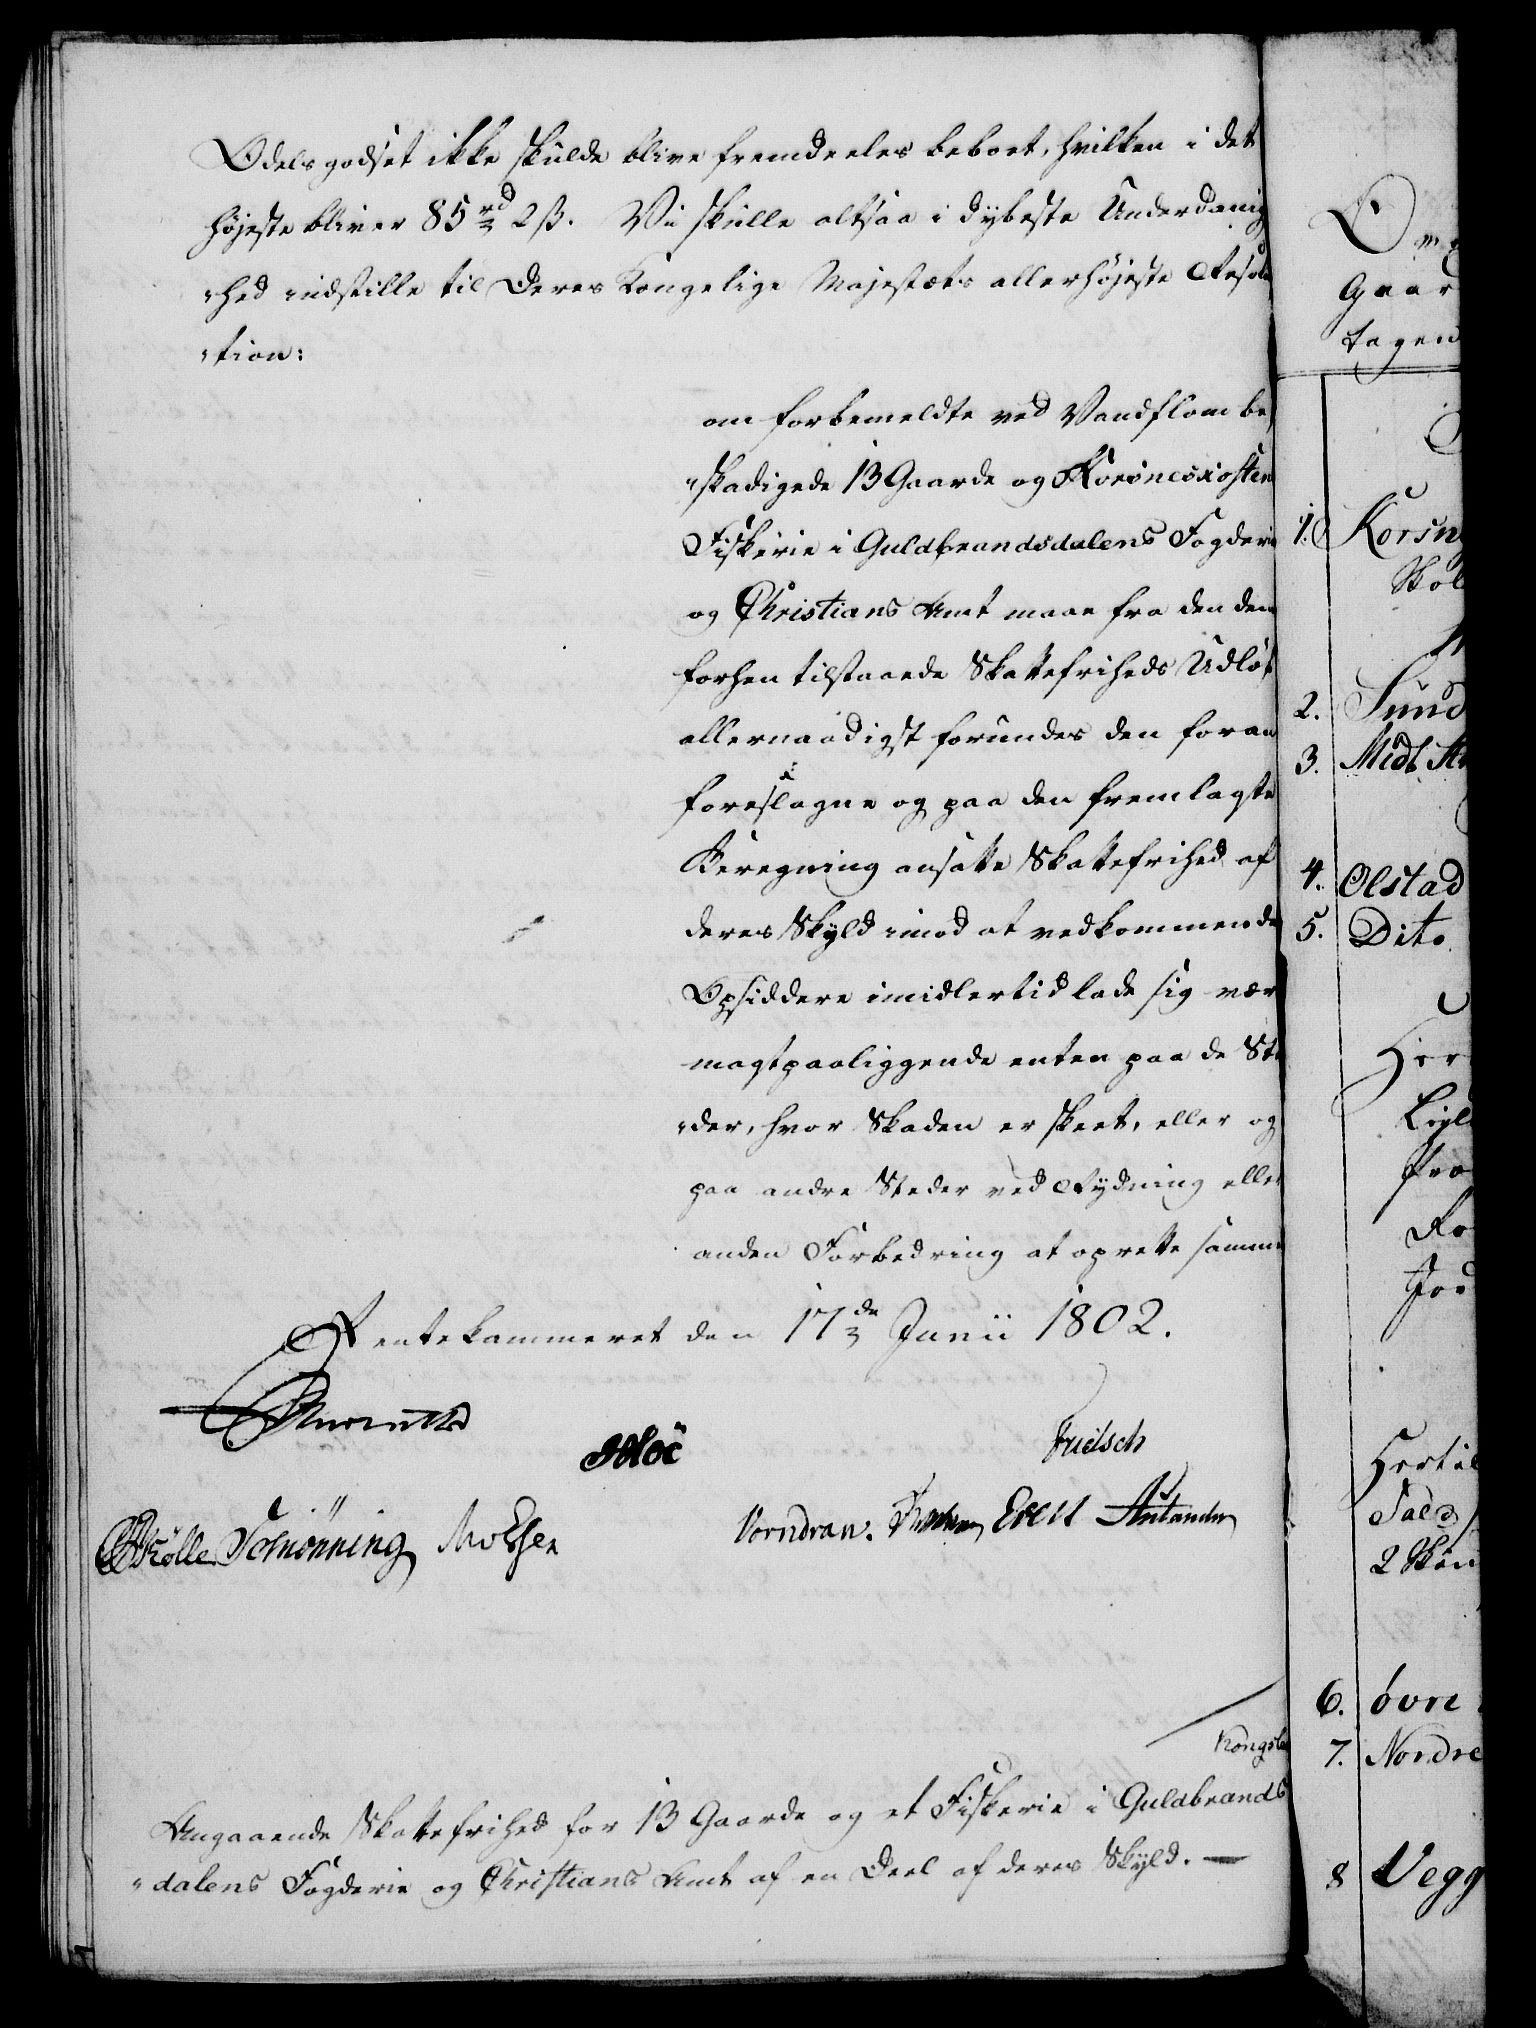 Odelsgodset ikke skulde blive fremdeeles beboet, hvilken i det
højeste bliver 85 rd 2 ß. Vi skulle altsaa i dybeste Underdanig
-hed indstille til Deres Kongelige Majestæts allerhøjeste Resolu
-tion:
om forbemeldte ved Vandflom be
-skadigede 13 Gaarde og Korsnes
Fiskerie i Guldbrandsdalens Fogderie
og Christians Amt maae fra den dem
forhen tilstaaede Skattefriheds Udløb
allernaadigst forundes den foran
foreslagne og paa den fremlagte
Beregning ansatte Skattefrihed af
deres Skyld imod at vedkommende
Opsiddere imidlertid lade sig være
magtpaaliggende enten paa de Ste
-der, hvor Skaden er skeet, eller og
paa andre Steder ved Rydning eller
anden Forbedring at oprette samme
Rentekammeret den 17de Junii 1802.
Knuth
Fritsch
Schiønning
Vorndran. Ewald
Kongsb
Angaaende Skattefrihed for 13 Gaarde og et Fiskerie i Guldbrands
-dalens Fogderie og Christians Amt af en Deel af deres Skyld.
Gaar
tagen
1. Korsn
Skol
2. Sund
3. Midt
4. Olstad
5. Dito
Her
Pro
Ro
Jor
Hertil
2 Skin
6. øvre
7. Nordre
8 Vegg